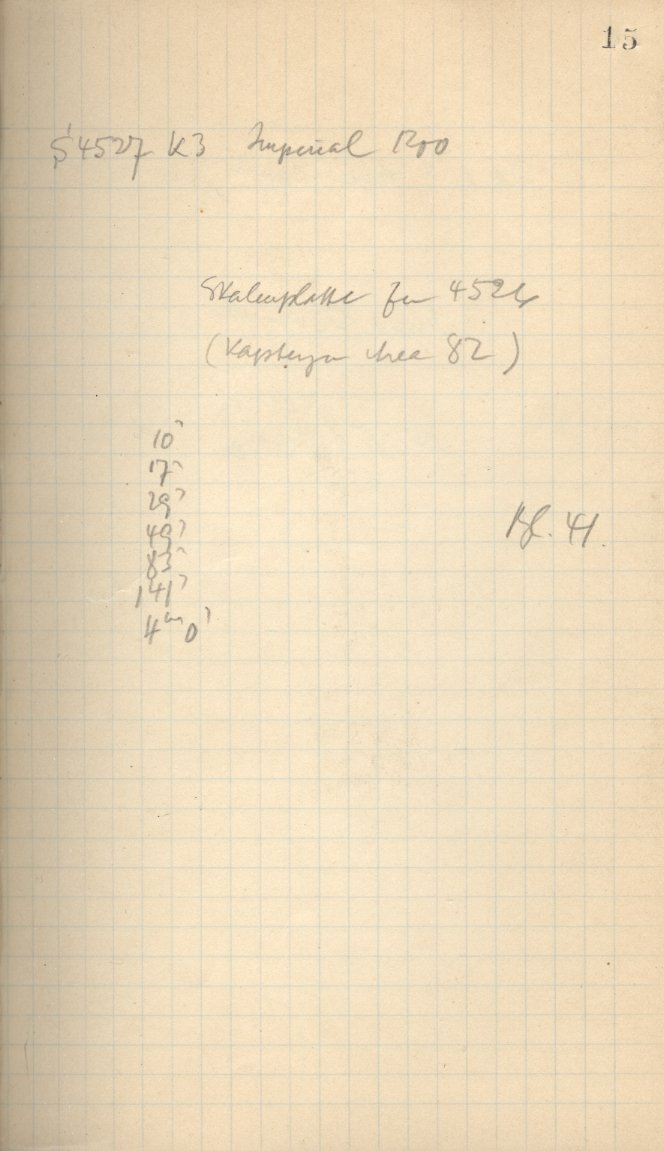 15
S4527 K3 Imperial 1200
Skalenplatte für 4526
(Kapteyn Area 82)
10ˢ
17ˢ
29ˢ
49ˢ
83ˢ
141ˢ
4ᵐ0ˢ
Bl. 41.